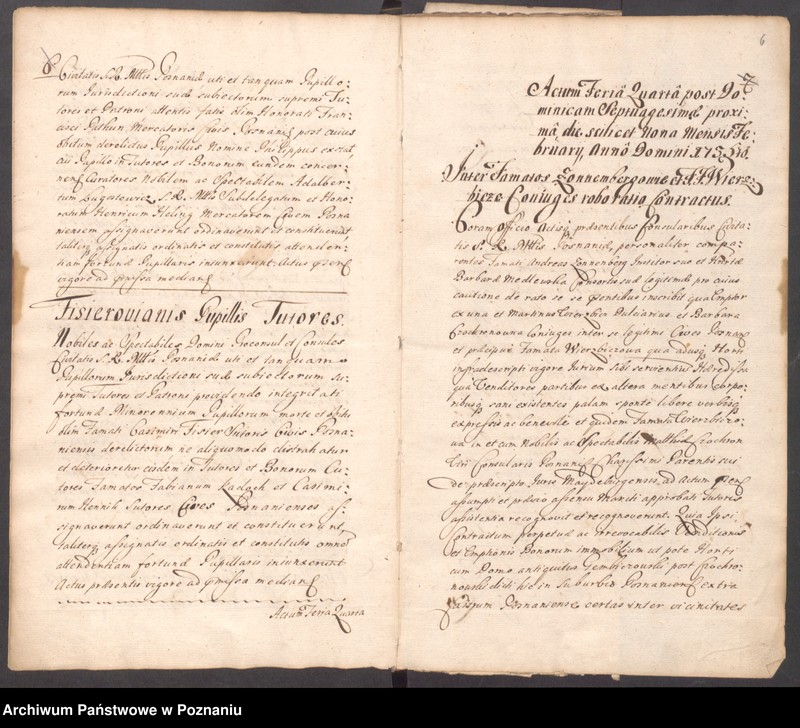 Civitatis S. R. Mttis Posnaniæ uti et tanquam Pupillo:
rum Jurisdictioni suæ subiectorum supremi Tu:
tores et Patroni attentis fatis olim Honorati Fran:
cisci Mercatoris Civis Posnanien post cuius
obitum derelictus Pupillus Nomine Philippus extat,
cui Pupillo in Tutores et Bonorum eundem concer:
nen Curatores Nobilem ac Spectabilem Adalber:
tum S. R. Mttis Subdelegatum et Hono:
ratum Henricum Heling Mercatorem Civem Posna
niensem assignaverunt ordinaverunt et constituerunt,
taliterq assignatis ordinatis et constitutis attenden:
tiam fortunæ Pupillaris iniunxerunt. Actus
vigore ad median
Fisierovianis Pupillis Tutores.
Nobiles ac Spectabiles Domini Proconsul et Consules
Civitatis S. R. Mttis Posnaniæ uti et tanquam
Pupillorum Jurisdictioni suæ subiectorum Su:
premi Tutores et Patroni providendo integritati
fortunæ Minorennium Pupillorum morte et obitu
olim Famati Casimiri Fisier Sutoris Civis Posna:
niensis derelictorum ne aliquomodo distrahatur
et deterioretur eisdem in Tutores et Bonorum Cu:
ratores Famatos Fabianum Ladoch et Casimi:
rum Hennik Sutores Cives Posnanienses as:
signaverunt ordinaverunt et constituerunt
taliterq assignatis ordinatis et constitutis omne
attendentiam fortunæ Pupillaris iniunxerunt
Actus præsentis vigore ad median
Actum Feria Quarta
6
Actum Feriâ Quartâ post Do:
minicam Septuagesimæ proxi:
mâ, die scilicet Nona Mensis Fe:
bruarÿ, Annô Domini
Inter Famatos Zonnenbergowie et FF Wierz:
bięze Coniuges roboratio Contractus.
Coram Officio Actisq præsentibus Consularibus Civita:
tis S. R. Mttis Posnaniæ, personaliter compa:
rentes Famati Andreas Zonnenberg Institor suo et
Barbaræ Medlewska Consortis suæ legitimæ pro cuius
cautione de rato se se inscribit qua Emptor
ex una et Martinus Wierzbica Dulciarius et Barbara
Coniuges inter se legitimi Cives Posnan
et præcipue Famata Wierzbicowa qua
infradescripti vigore Jurium Sibi servientiū Hæredissa
qua Venditores partibus ex altera mentibus corpo:
ribusq sani existentes palam sponte libere verbisq
expressis ac benevole et quidem Famata Wierzbico:
wa in et cum Nobilis ac Spectabilis Matthiæ Czochron
Viri Consularis Posnanien Charissimi Parentis sui
de præscripto Juris Maydeburgensis, ad Actum
assumpti et prævio assensu Mariti approbati Tutoris
assistentia recognovit et recognoverunt. Quia Ipsi
Contractum perpetuæ ac irrevocabilis Venditionis
et Emptionis Bonorum immobilium ut pote Horti
cum Domo antiquitus post Czochro:
nowski dicti hic in Suburbio Posnanien extra
Posnaniense certas inter vicinitates
Archiwum Państwowe w Poznaniu